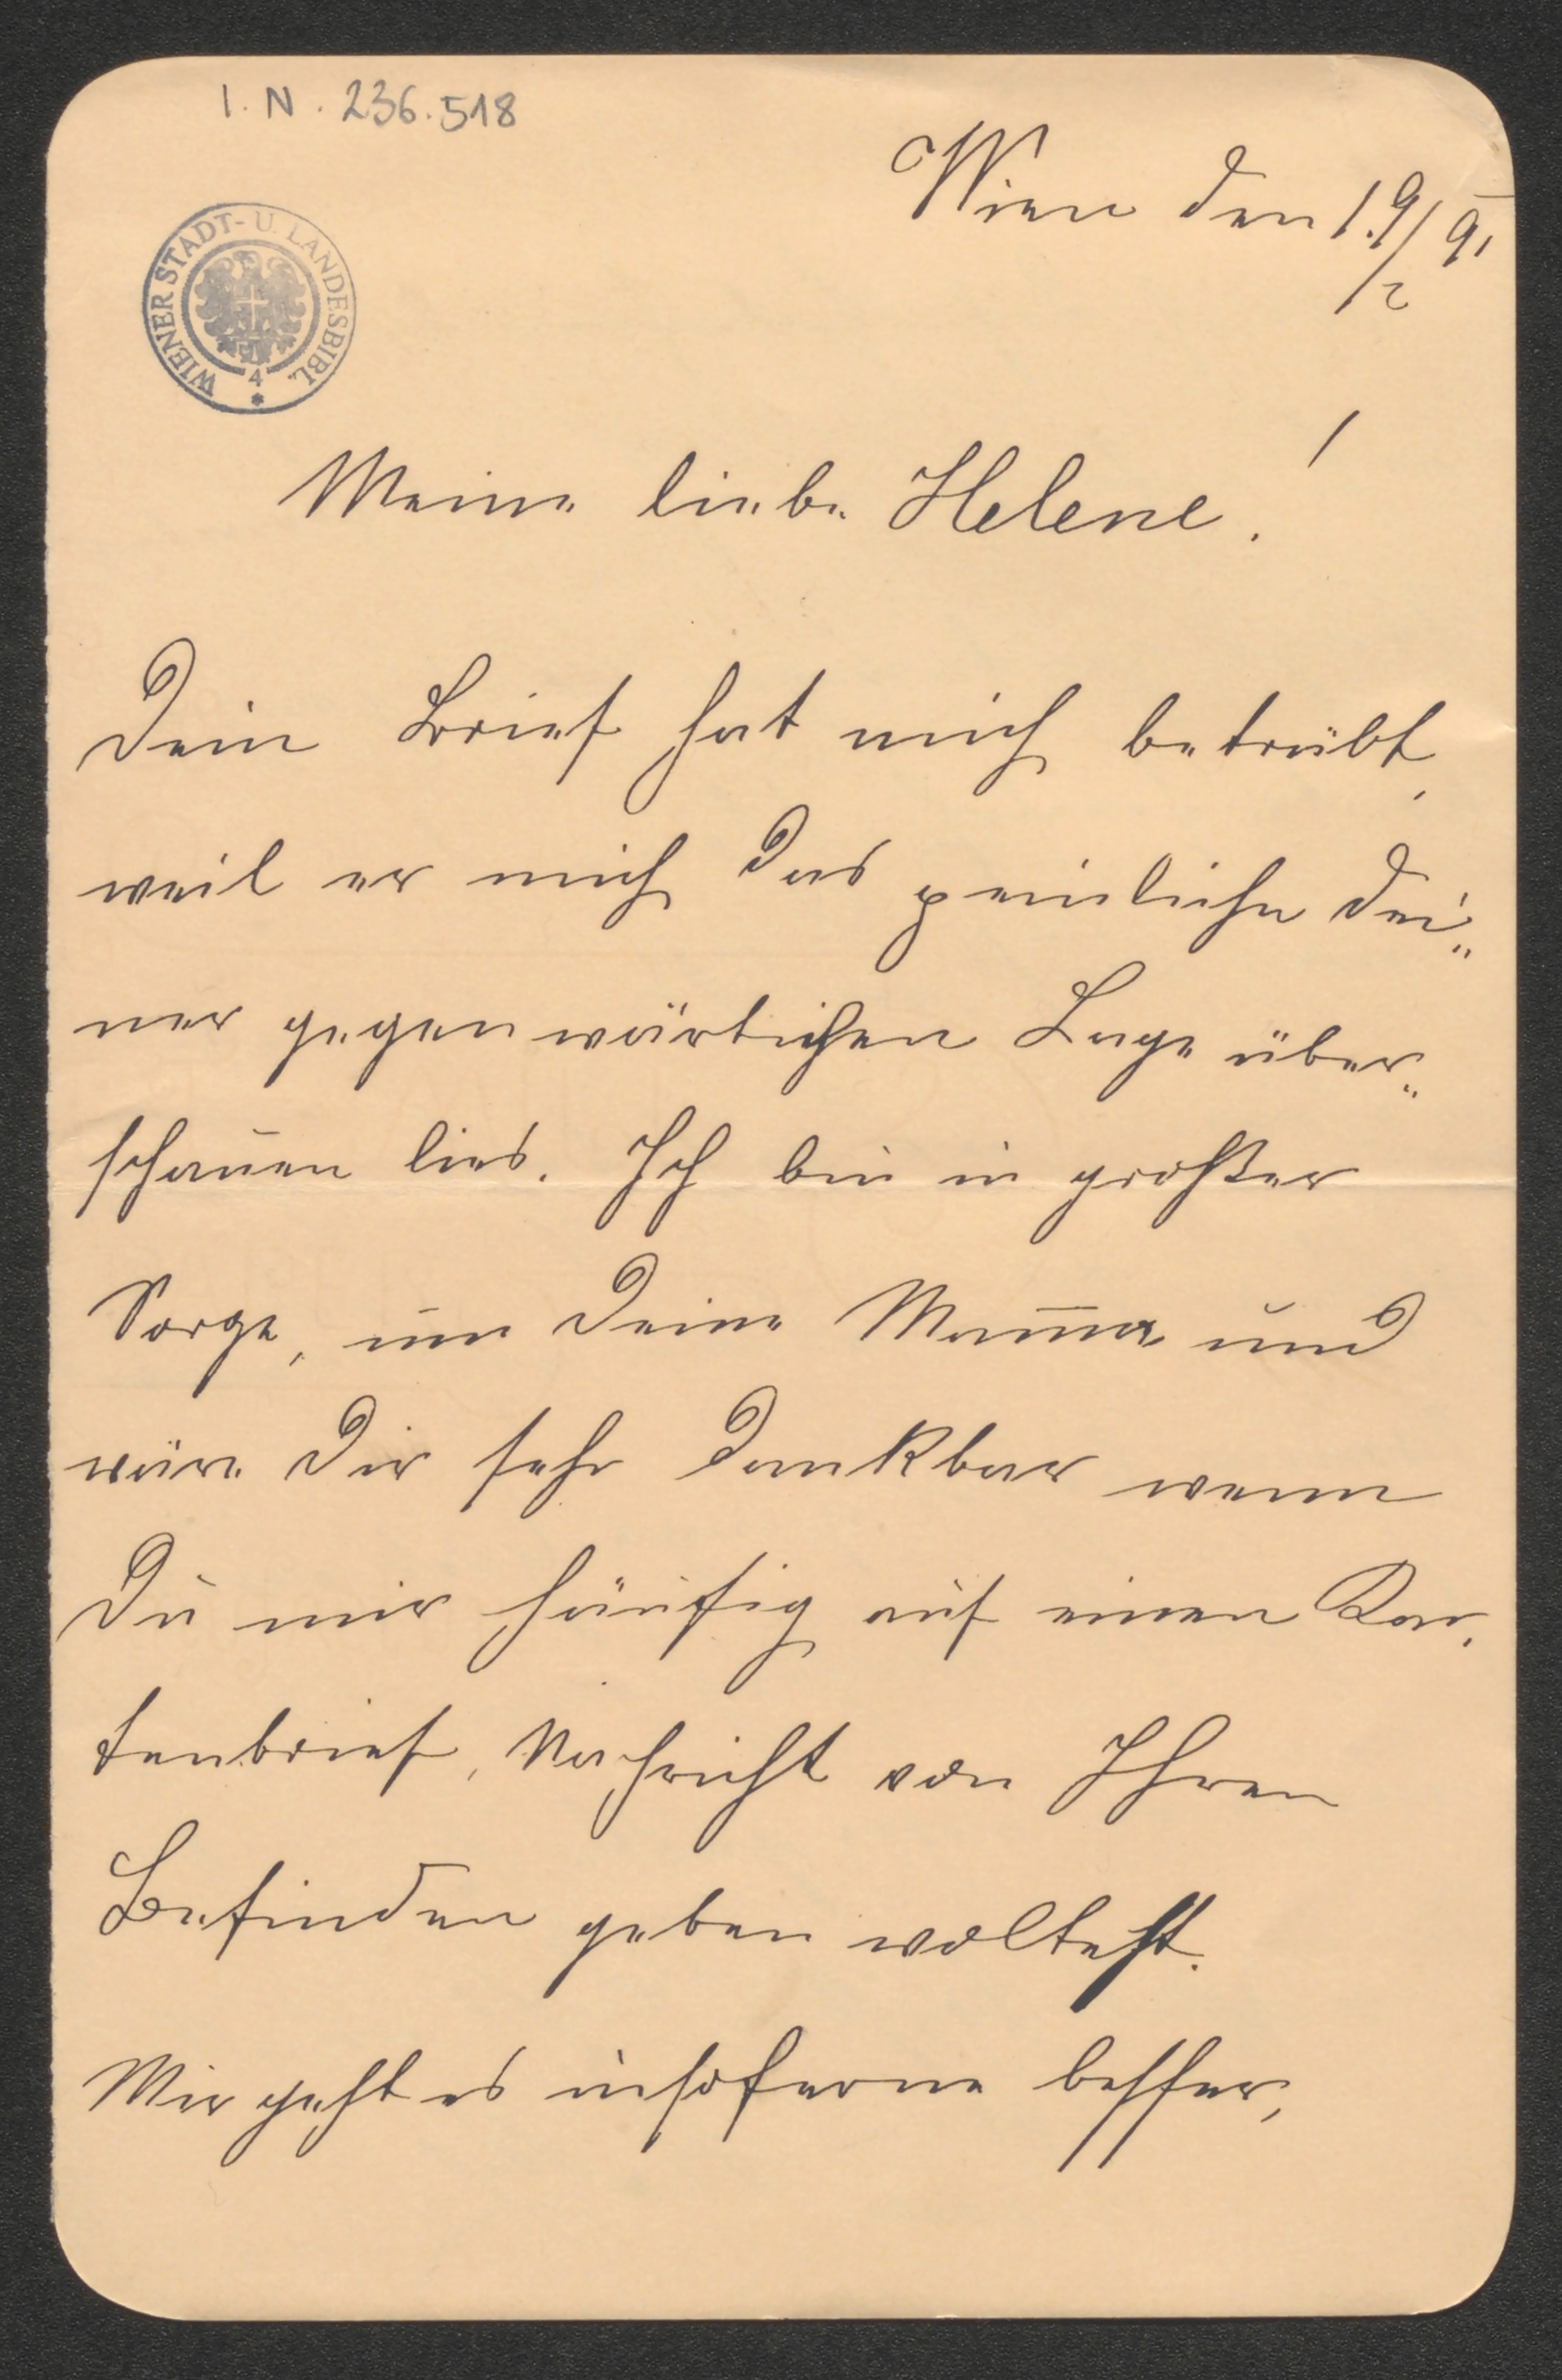 I. N. 236.518
Wien den 19/2 91
WIENER STADT- U. LANDESBIBL.
4
Meine liebe Helene!
Dein Brief hat mich betrübt,
weil er mich das peinliche dei„
ner gegenwärtigen Lage über„
schauen lies. Ich bin in großer
Sorge, um Deine Mam̅a und
wäre Dir sehr dankbar wenn
Du mir häufig auf einen Kar„
tenbrief, Nachricht von Ihren
Befinden geben wolltest.
Mir geht es insoferne besser,